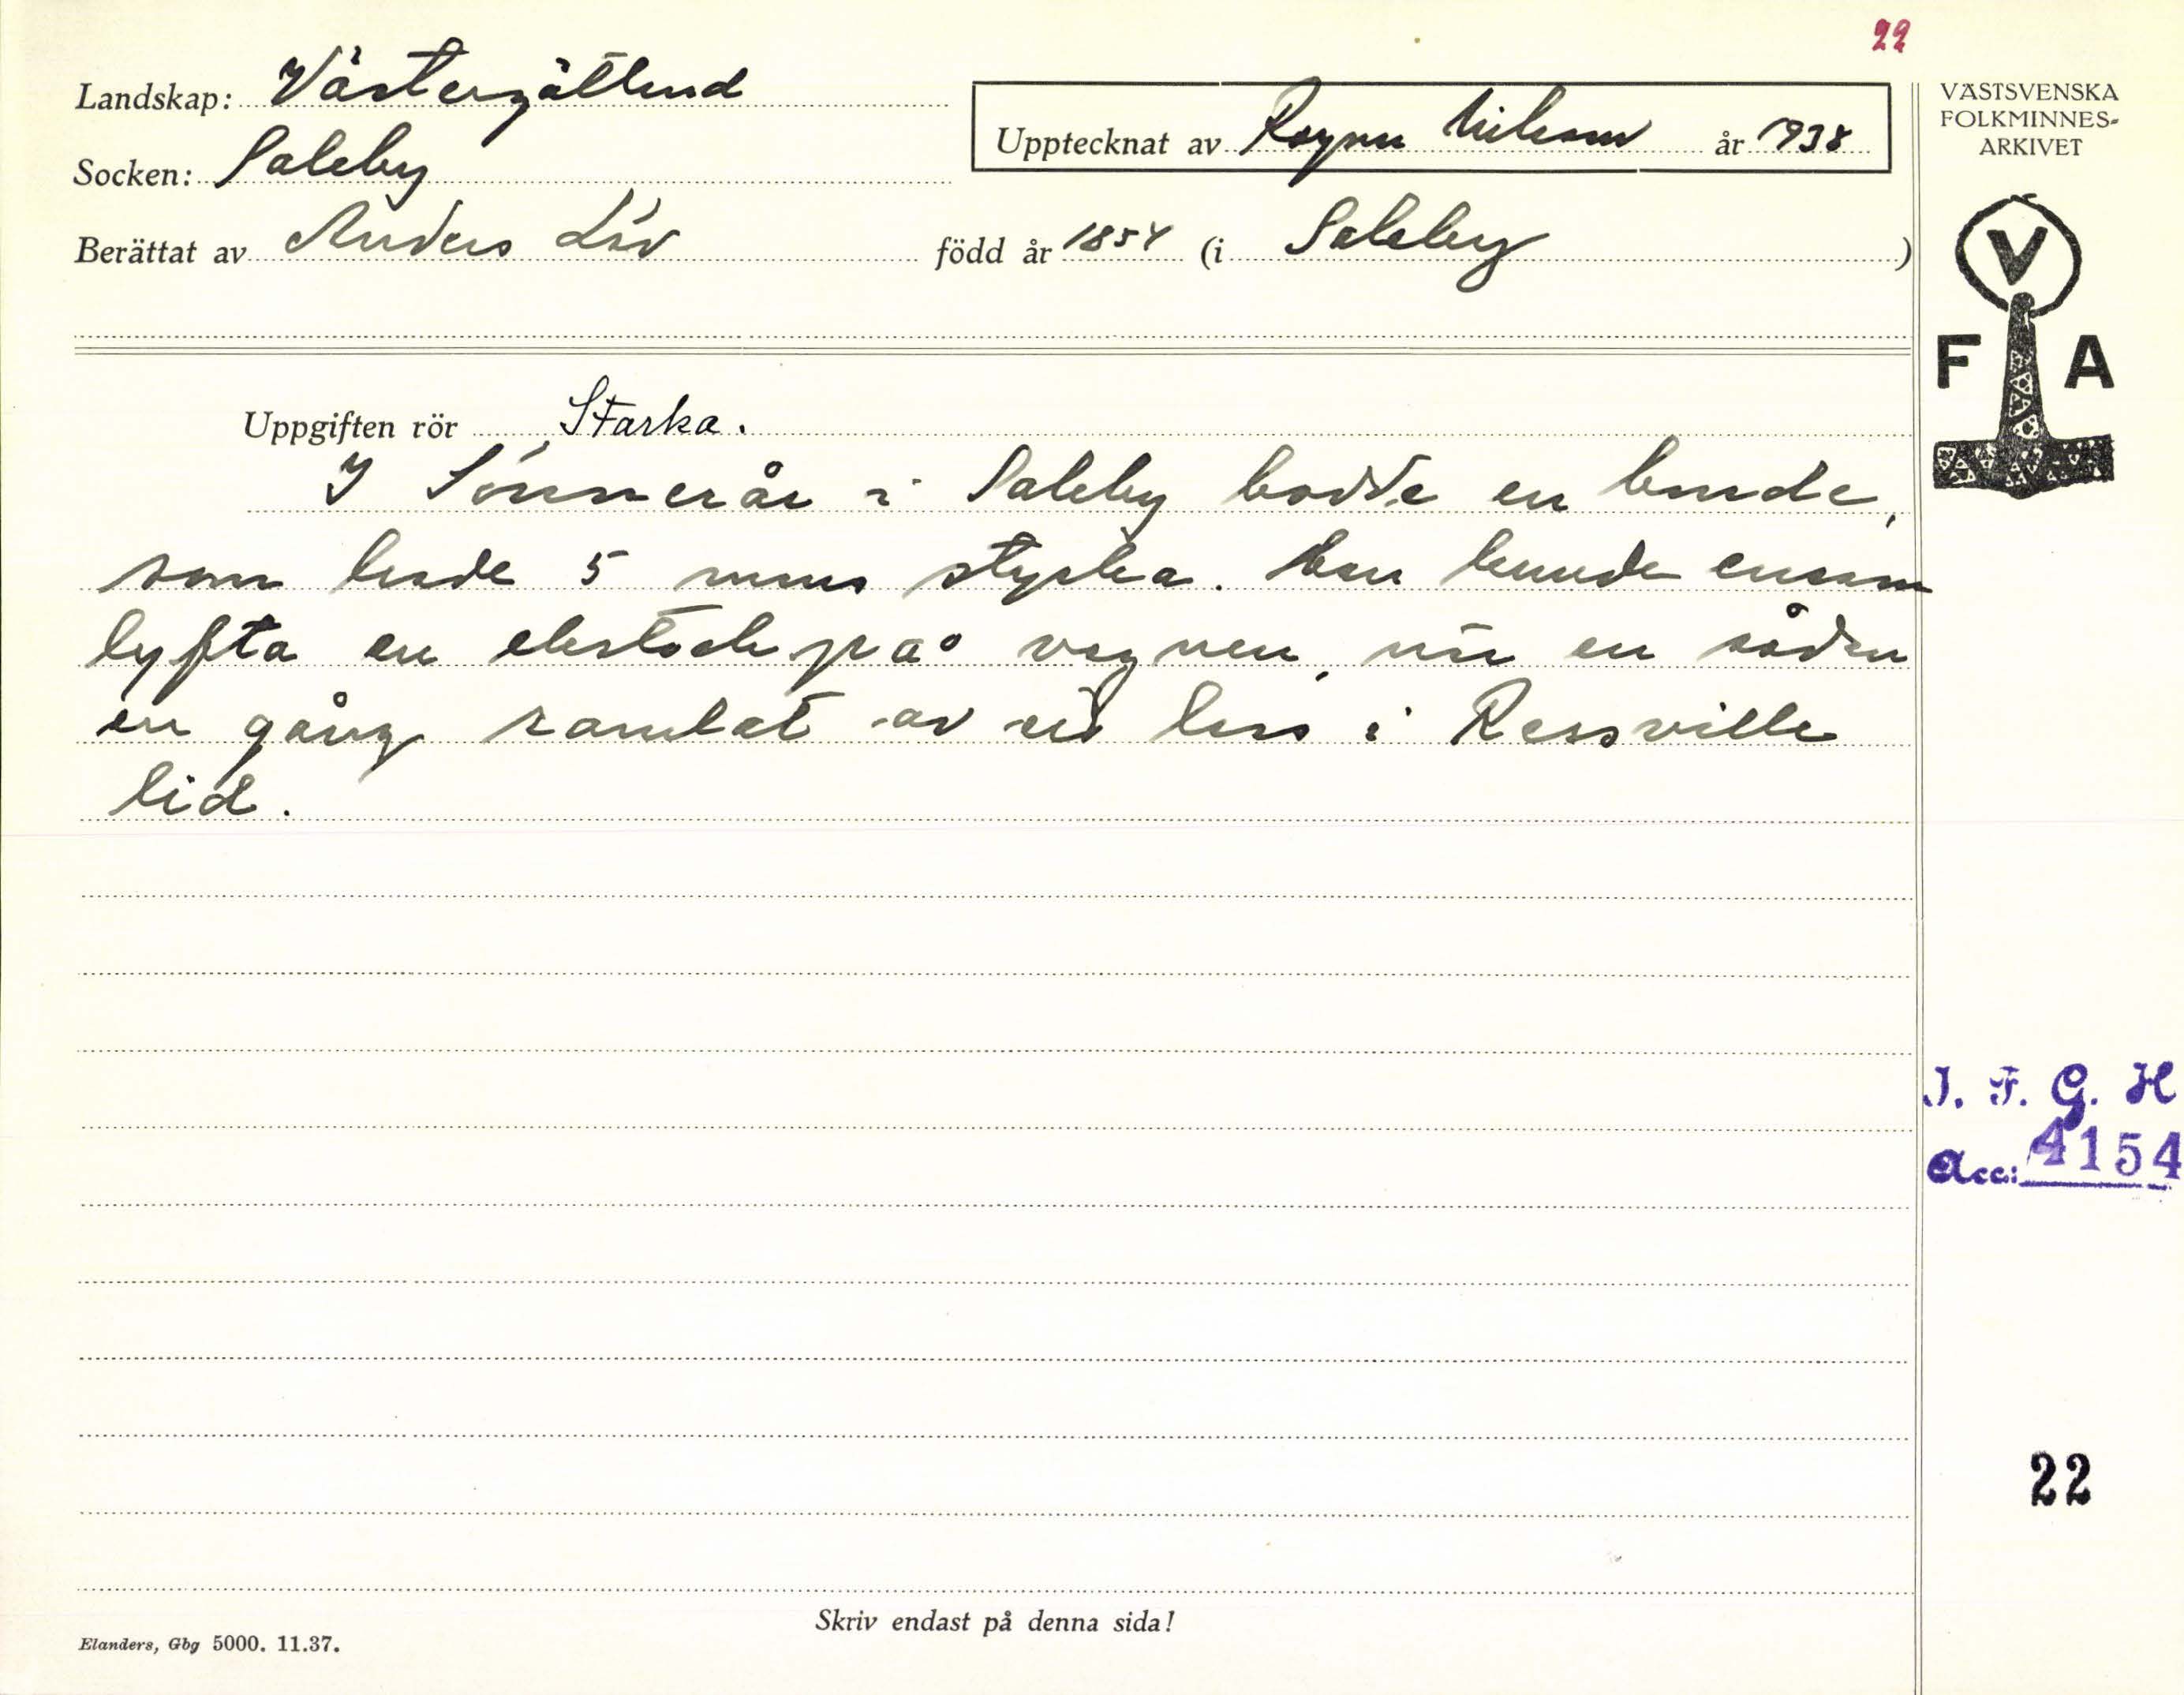 22
Landskap: Västergötland
Upptecknat av Ragnar Nilsson år 1938
VÄSTSVENSKA
FOLKMINNES-
ARKIVET
Socken: Saleby
Berättat av Anders Löv född år 1854 (i Saleby)
V
F A
Uppgiften rör Starka.
I Sönnerår i Saleby bodde en bonde,
som hade 5 mans styrka. Han kunde ensam
lyfta en ekstock på vagnen, när en sådan
en gång ramlat av ett lass i Ressville
lid.
I. F. G. H
Acc: 4154
22
Skriv endast på denna sida!
Elanders, Gbg 5000. 11.37.